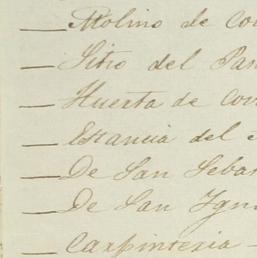 Molino de Co
Sitio del Pan
Huerta de Cov
Estancia del
De San Sebas
De San Igna
Carpinteria